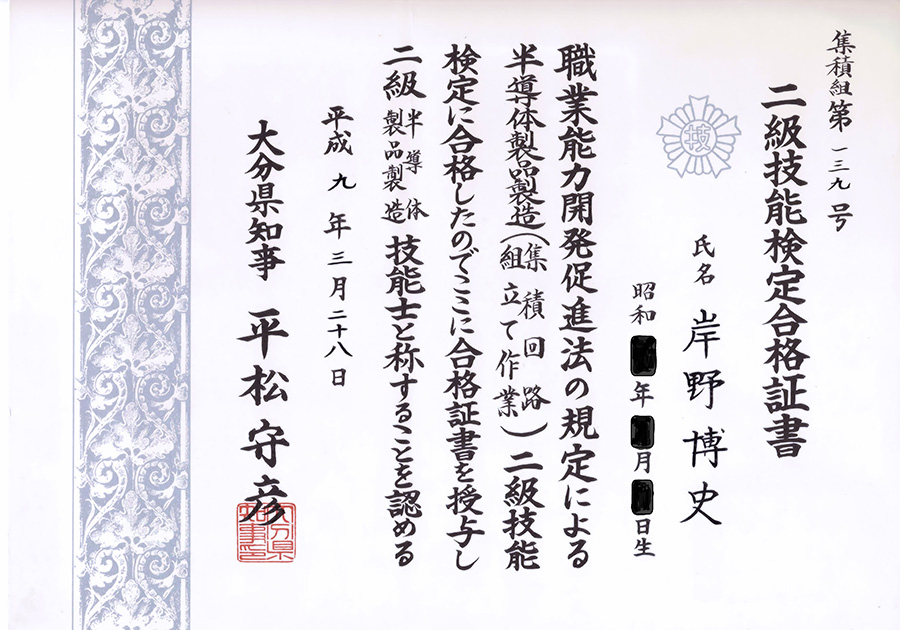 集積組第一三九号
二級技能検定合格証書
技
氏名 岸野博史
昭和 年 月 日生
職業能力開発促進法の規定による
半導体製品製造(集積回路組立て作業)二級技能
検定に合格したのでここに合格証書を授与し
二級半導体製品製造技能士と称することを認める
平成九年三月二十八日
大分県知事 平松守彦
大分県知事之印